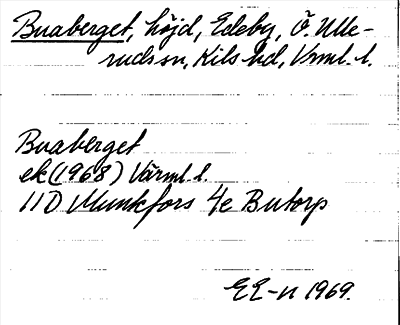 Buaberget, höjd, Edeby, Ö. Ulle-
rud sn, Kils hd, Vrml. l.
Buaberget
ek (1968) Värml. l.
11D Munkfors 4e Butorp
EE-n 1969.